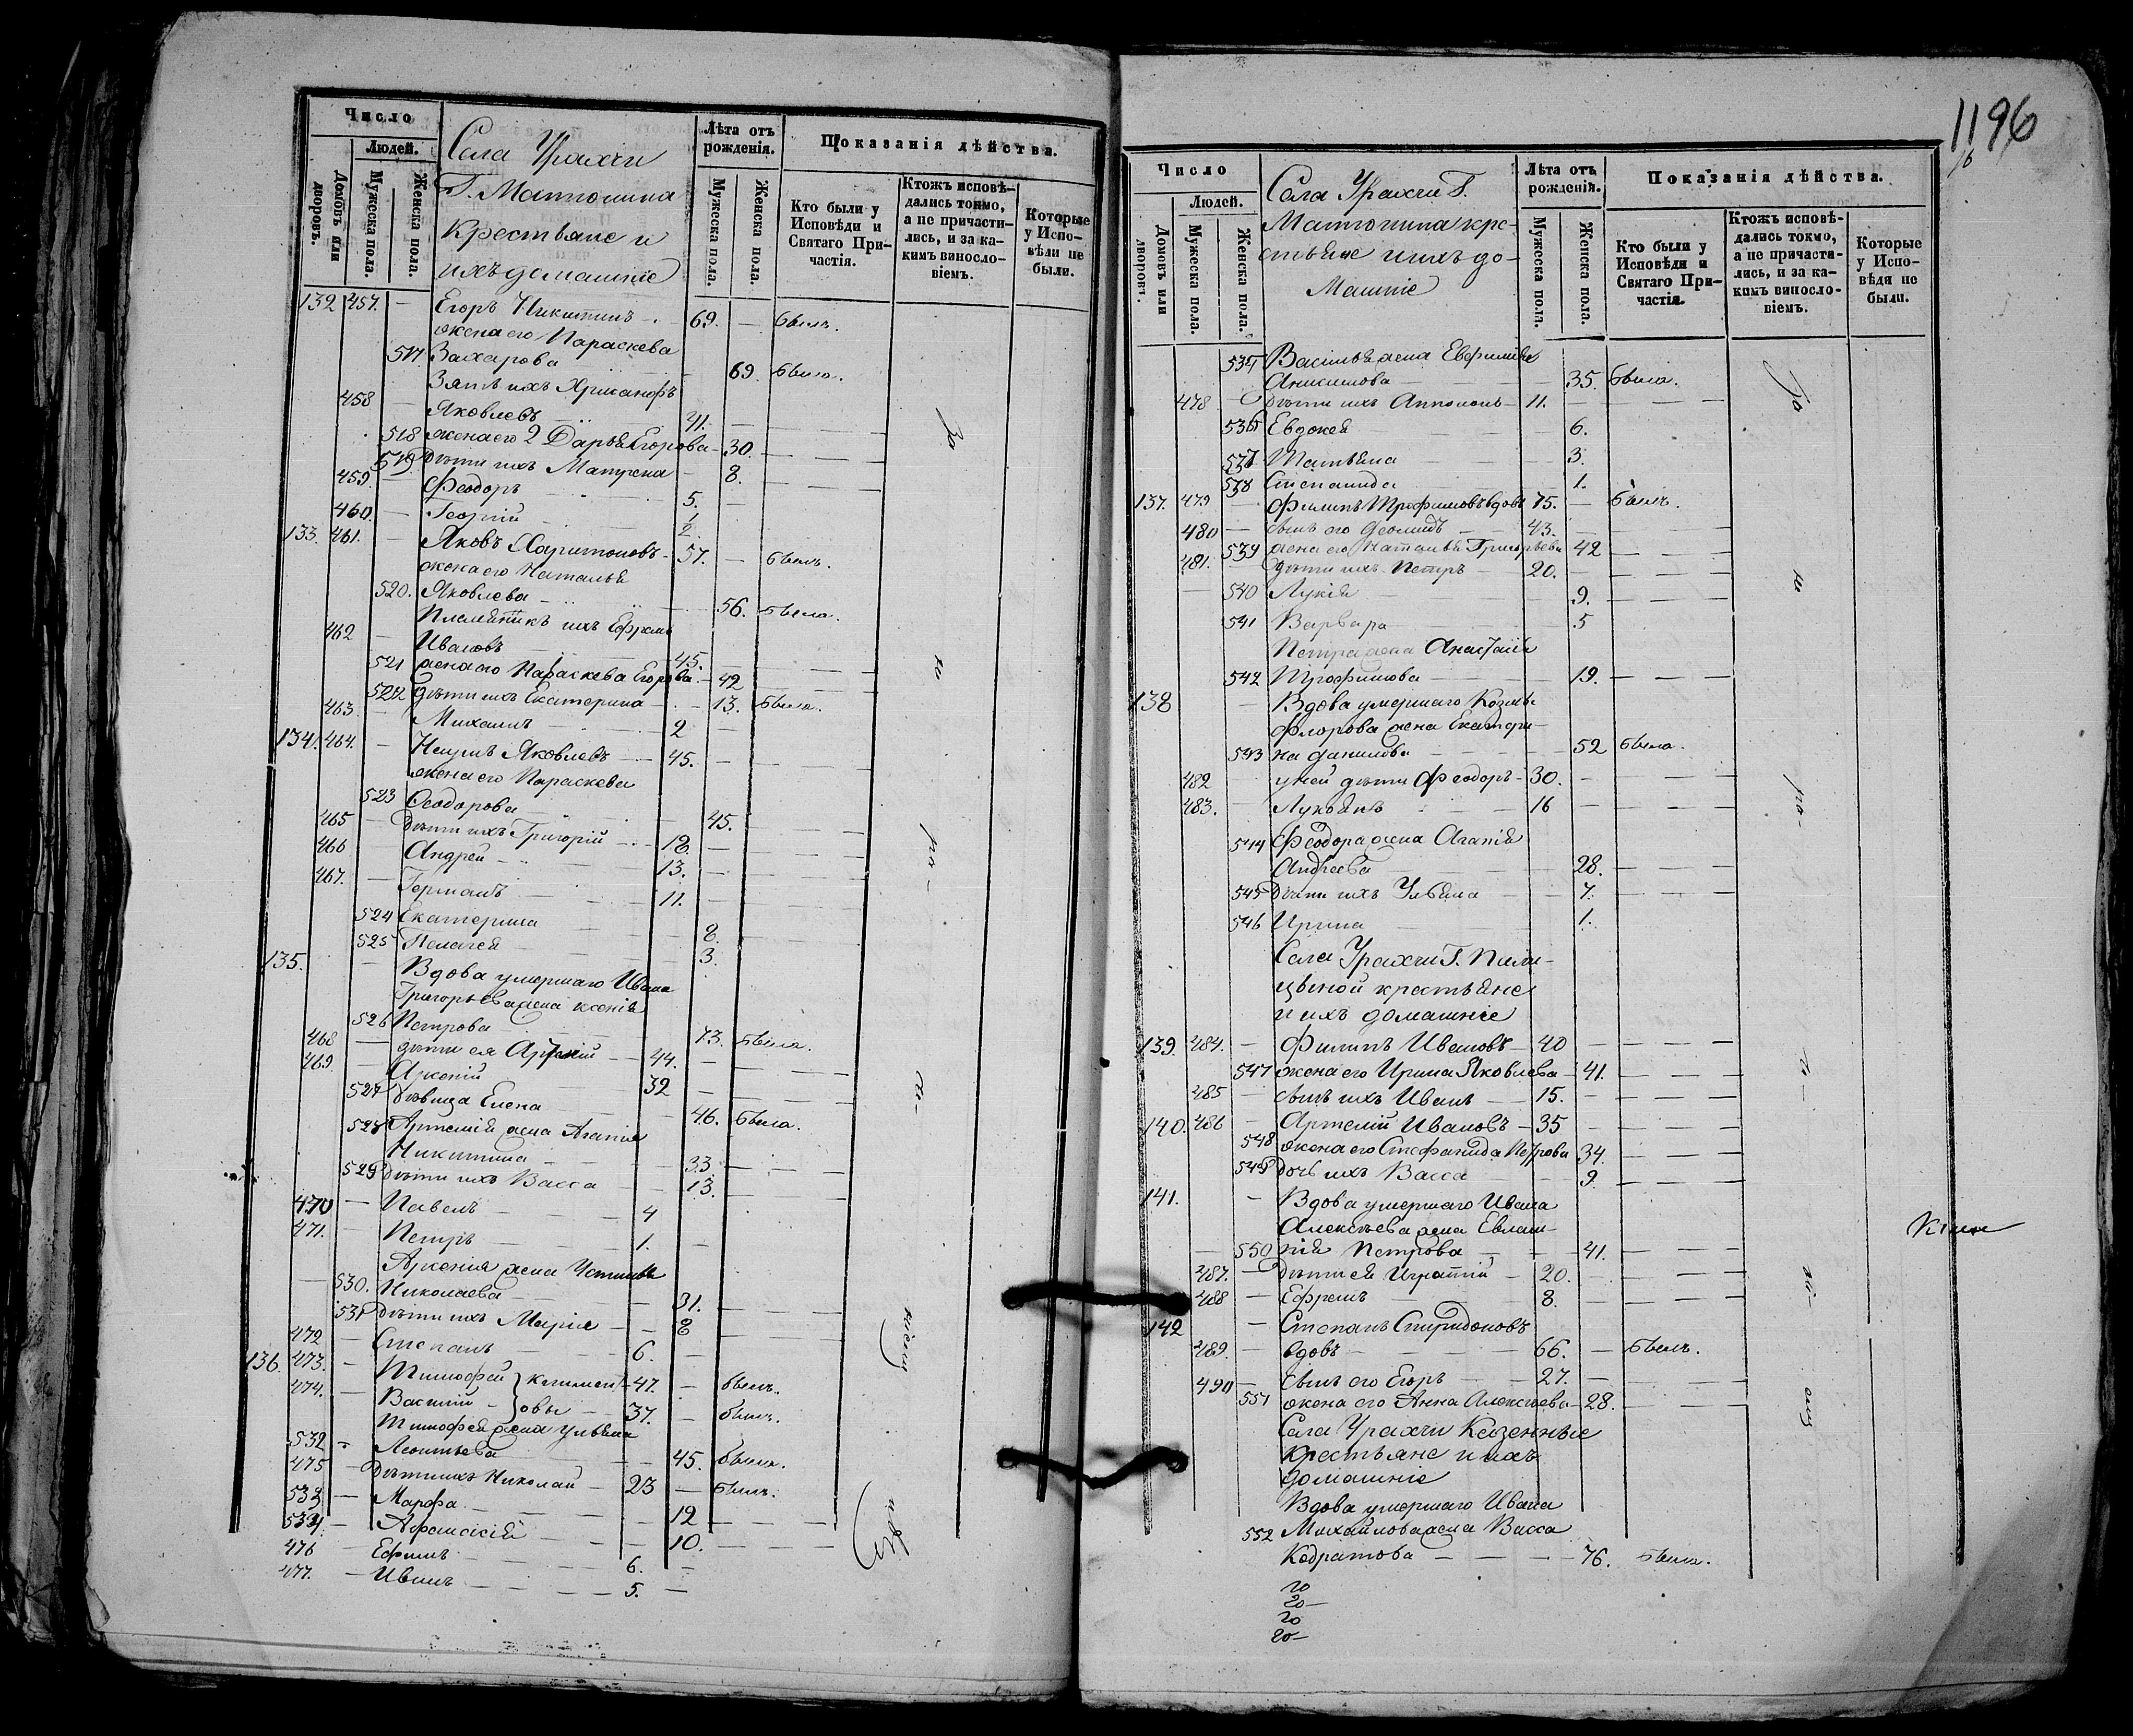 Число
Людей.
Домовъ или дворовъ.
Мужеска пола.
Женска пола.
Села Урахчи
Г. Матюнина
Крестьяне и
ихъ домашніе
Лѣта отъ рожденія.
Мужеска пола.
Женска пола.
Показанія дѣйства.
Кто были у Исповѣди и Святаго Причастія.
Ктожъ исповѣдались токмо, а не причастились, и за какимъ винословіемъ.
Которые у Исповѣди не были.
132 457. — Егоръ Никитинъ — 69. — былъ.
жена его Параскева
517 Захарова — 69. была.
Зять ихъ Хрисанфъ
458 — Яковлевъ 41. —
518 жена его 2 Дарья Егорова — 30. —
519 дѣти ихъ Матрена — 8.
459. — Феодоръ — 5. —
460. — Георгій — 1/2. —
133. 461. — Яковъ Харитоновъ — 57. — былъ.
жена его Наталья
520. Яковлева — 56. была.
Племянникъ ихъ Ефремъ
462 — Ивановъ 45. —
521 жена его Параскева Егорова — 42
522 дѣти ихъ Екатерина — 13. была.
463. — Михаилъ — 2 —
134. 464. — Наумъ Яковлевъ — 45. —
жена его Параскева
523 Феодорова 45.
465 — дѣти ихъ Григорій — 18. —
466 Андрей — 13. —
467. — Германъ — 11. —
524 Екатерина — 8.
525 Пелагея — 3.
135. — Вдова умершаго Ивана
Григорьева жена Ксенія
526 Петрова 73. была.
468 — дѣти ея Артемій — 44. —
469. — Арсеній 32 —
527 дѣвица Елена 46. была.
528 Артемія жена Агапія
Никитина — 33 —
529 дѣти ихъ Васса — 13.
470 — Павелъ — 4
471. — Петръ — 1. —
Арсенія жена Устинья
530. Николаева — 31. —
531 дѣти ихъ Марія — 8
472 — Степанъ — 6. —
136. 473. — Тимофей } Климент- 47. — былъ.
474. — Василій } овы — 37. — былъ.
Тимофея жена Ульяна
532 — Леонтьева — 45. была.
475 — дѣти ихъ Николай — 23 — былъ.
533 — Марфа — 12
534 — Афанасій — 10.
476 — Ефимъ — 6. —
477. — Иванъ — 5. —
За
и
1196
Число
Людей.
Домовъ или дворовъ.
Мужеска пола.
Женска пола.
Села Урахчи Г.
Матюнина кре-
стьяне и ихъ до-
машніе
Лѣта отъ рожденія.
Мужеска пола.
Женска пола.
Показанія дѣйства.
Кто были у Исповѣди и Святаго Причастія.
Ктожъ исповѣдались токмо, а не причастились, и за какимъ винословіемъ.
Которые у Исповѣди не были.
535 Василья жена Евфимія
Аникинова — 35. была.
478 — дѣти ихъ Аполонъ — 11. —
536 Евдокея — 6.
537 Татьяна — 3.
538 Степанида — 1.
137. 479 — Филипъ Трофимовъ вдовъ 75. — былъ.
480 — сынъ его Деомидъ — 43. —
539 жена его Наталья Григорьева 42 —
481. — дѣти ихъ Петръ — 20. —
540 Лукія — 9. —
541 Варвара — 5
Петра жена Анастасія
542 Трофимова — 19. —
138 — Вдова умершаго Козмы
Флорова жена Екатери-
543 на Данилова — 52 была.
482 у ней дѣти Феодоръ — 30. —
483. — Лукьянъ — 16 —
544 Феодора жена Агапія
Андреева — 28. —
545 дѣти ихъ Ульяна — 7.
546 Ирина — 1.
Села Урахчи Г. Пили-
цыной крестьяне
и ихъ домашніе
139. 484. — Филипъ Ивановъ — 40 —
547 жена его Ирина Яковлева — 41. —
485 — сынъ ихъ Иванъ — 15. —
140. 486 — Артемій Ивановъ — 35 —
548 жена его Стефанида Петрова 34. —
549 дочь ихъ Васса — 9. —
141. — Вдова умершаго Ивана
Алексѣева жена Евлам-
550 пія Петрова — 41. —
487. — дѣти ея Игнатій — 20. —
488 — Ефремъ — 8. —
142 — Степанъ Спиридоновъ
489. — вдовъ — 66. — былъ.
490 — сынъ его Егоръ — 27. —
551 жена его Анна Алексѣева — 28. —
Села Урахчи Казенные
крестьяне и ихъ
домашніе
Вдова умершаго Ивана
552 Михайлова жена Васса
Кодратова — 76. была.
20
20
20
20
За
и